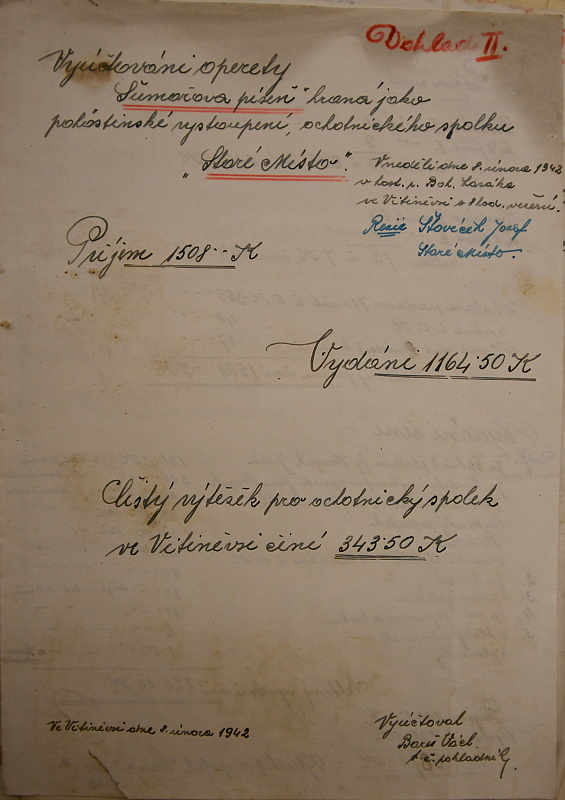 Dohlad II.
Vyúčtováni operety
"Šumařova píseň" hraná jako
pohostinské vystoupení, ochotnického spolku
"Staré Místo".
V neděli dne 8. února 1942
v host. p. Boh.
ve Vitiněvsi o 8 hod. večerní.
Režie Šťovíček Josef
Staré Místo.
Příjem 1508·- K
Vydáni 1164·50 K
Čistý výtěžek pro ochotnický spolek
ve Vitiněvsi činé 343·50 K
Ve Vitiněvsi dne 8. února 1942
Vyúčtoval
Bareš Václ.
t. č. pokladník